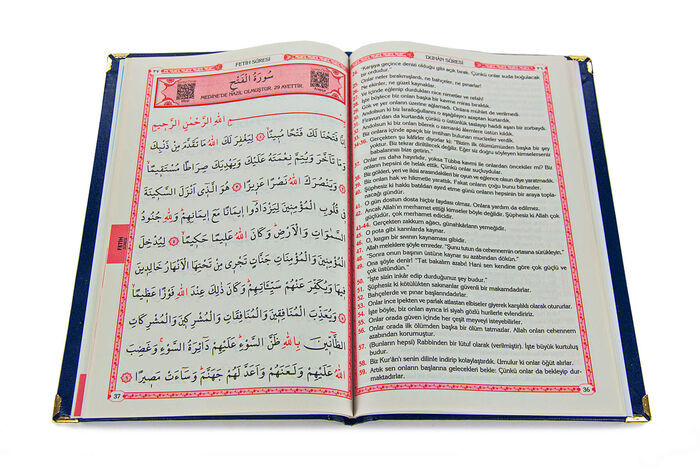 FETİH SÛRESİ
٣٧
سُورَةُ الْفَتْحِ
MEDİNE'DE NAZİL OLMUŞTUR. 29 AYETTİR.
بِسْمِ اللّٰهِ الرَّحْمٰنِ الرَّحِيمِ
اِنَّا فَتَحْنَا لَكَ فَتْحًا مُبِينًا ۙ ﴿١﴾ لِيَغْفِرَ لَكَ اللّٰهُ مَا تَقَدَّمَ مِنْ ذَنْبِكَ
وَمَا تَاَخَّرَ وَيُتِمَّ نِعْمَتَهُ عَلَيْكَ وَيَهْدِيَكَ صِرَاطًا مُسْتَقِيمًا ۙ
﴿٢﴾ وَيَنْصُرَكَ اللّٰهُ نَصْرًا عَزِيزًا ﴿٣﴾ هُوَ الَّذِي اَنْزَلَ السَّكِينَةَ
فِي قُلُوبِ الْمُؤْمِنِينَ لِيَزْدَادُوا اِيمَانًا مَعَ اِيمَانِهِمْ وَلِلّٰهِ جُنُودُ
السَّمٰوَاتِ وَالْاَرْضِ وَكَانَ اللّٰهُ عَلِيمًا حَكِيمًا ۙ ﴿٤﴾ لِيُدْخِلَ
الْمُؤْمِنِينَ وَالْمُؤْمِنَاتِ جَنَّاتٍ تَجْرِي مِنْ تَحْتِهَا الْاَنْهَارُ خَالِدِينَ
فِيهَا وَيُكَفِّرَ عَنْهُمْ سَيِّـَٔاتِهِمْ وَكَانَ ذٰلِكَ عِنْدَ اللّٰهِ فَوْزًا عَظِيمًا ۙ
﴿٥﴾ وَيُعَذِّبَ الْمُنَافِقِينَ وَالْمُنَافِقَاتِ وَالْمُشْرِكِينَ وَالْمُشْرِكَاتِ
الظَّانِّينَ بِاللّٰهِ ظَنَّ السَّوْءِ عَلَيْهِمْ دَائِرَةُ السَّوْءِ وَغَضِبَ
اللّٰهُ عَلَيْهِمْ وَلَعَنَهُمْ وَاَعَدَّ لَهُمْ جَهَنَّمَ وَسَاءَتْ مَصِيرًا ﴿٦﴾
37
FETİH
DUHÂN SÛRESİ
٣٦
"Karşıya geçince denizi olduğu gibi açık bırak. Çünkü onlar suda boğulacak
bir ordudur."
25. Onlar neler bırakmışlardı, ne bahçeler, ne pınarlar!
26. Ne ekinler, ne güzel kaynaklar!
27. Ve içinde eğlenip durdukları nice nimetler ve refah!
28. İşte böylece biz onları başka bir kavme miras bıraktık.
29. Gök ve yer onların üzerine ağlamadı. Onlara mühlet de verilmedi.
30. Andolsun ki biz İsrailoğullarını o aşağılayıcı azaptan kurtardık.
31. Firavun'dan da kurtardık çünkü o üstünlük taslayıp haddi aşan bir zorbaydı.
32. Andolsun ki biz onları bilerek o zamanki âlemlere üstün kıldık.
33. Biz onlara içinde apaçık bir imtihan bulunan mucizeler verdik.
34-36. Gerçekten şu kâfirler diyorlar ki: "Bizim ilk ölümümüzden başka bir şey
yoktur. Biz tekrar diriltilecek değiliz. Eğer siz doğru söyleyen kimselerseniz
babalarımızı bize getirin."
37. Onlar mı daha hayırlıdır, yoksa Tübba kavmi ile onlardan öncekiler mi? Biz
onların hepsini de helak ettik. Çünkü onlar suçluydular.
38. Biz gökleri, yeri ve ikisi arasındakileri bir oyun ve eğlence olsun diye yaratmadık.
39. Biz onları hak ve hikmetle yarattık. Fakat onların çoğu bunu bilmezler.
40. Şüphesiz ki hakkı batıldan ayırd etme günü onların hepsinin bir araya topla-
nacağı gündür.
41. O gün dostun dosta hiçbir faydası olmaz. Onlara yardım da edilmez.
42. Ancak Allah'ın merhamet ettiği kimseler böyle değildir. Şüphesiz ki Allah çok
güçlüdür, çok merhamet edicidir.
43-44. Gerçekten zakkum ağacı, günahkârların yemeğidir.
45. O pota gibi karınlarda kaynar.
46. O, kızgın bir sıvının kaynaması gibidir.
47. Allah meleklere şöyle emreder. "Şunu tutun da cehennemin ortasına sürükleyin."
48. "Sonra onun başının üstüne kaynar su azabından dökün."
49. Ona şöyle denir! "Tat bakalım azabı! Hani sen kendine göre çok güçlü ve
çok üstündün."
50. "İşte sizin inkâr edip durduğunuz şey budur."
51. Şüphesiz ki kötülükten sakınanlar güvenli bir makamdadırlar.
52. Bahçelerde ve pınar başlarındadırlar.
53. Onlar ince ipekten ve parlak atlastan elbiseler giyerek karşılıklı olarak otururlar.
54. İşte böyle, biz onları ayrıca iri siyah gözlü hurilerle evlendiririz.
55. Onlar orada güven içinde her çeşit meyveyi isteyebilirler.
56. Onlar orada ilk ölümden başka bir ölüm tatmazlar. Allah onları cehennem
azabından korumuştur.
57. (Bunların hepsi) Rabbinden bir lütuf olarak (verilmiştir). İşte büyük kurtuluş
budur.
58. Biz Kur'ân'ı senin dilinle indirip kolaylaştırdık. Umulur ki onlar öğüt alırlar.
59. Artık sen onların başlarına gelecekleri bekle: Çünkü onlar da bekleyip dur-
maktadırlar.
36